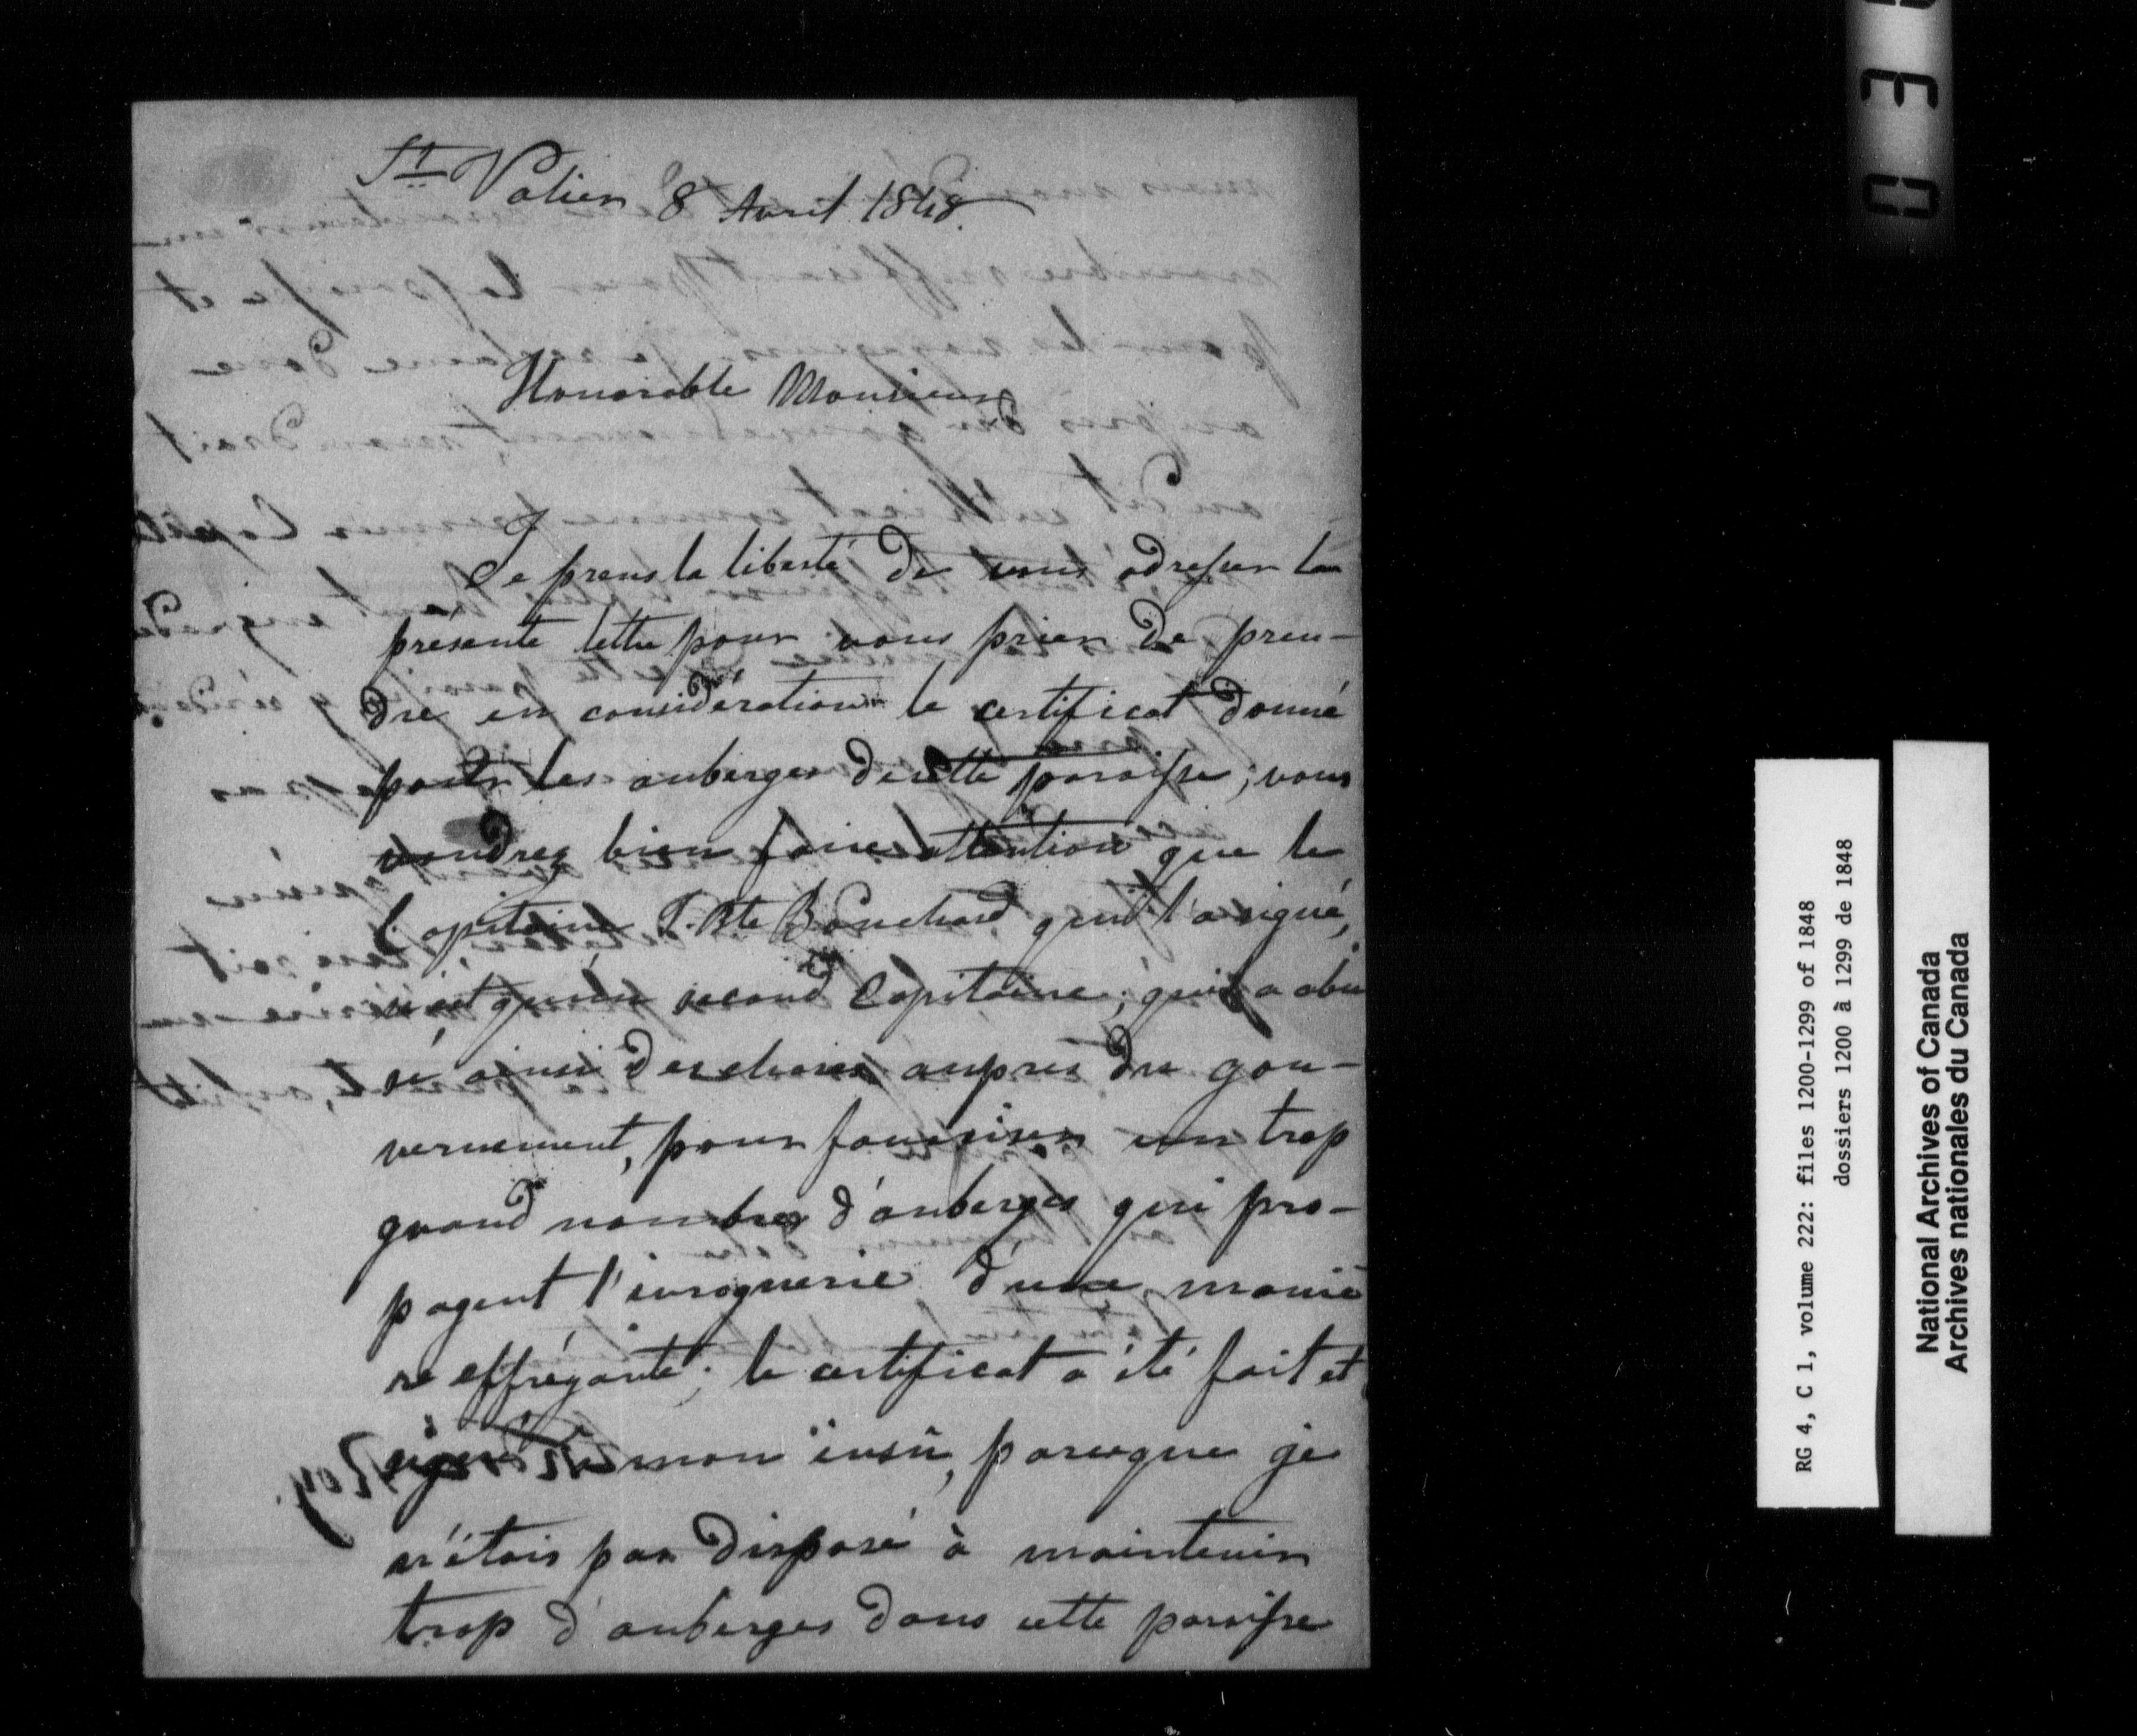 St Valier 8 Avril 1848.
Honorable Monsieur
Je prens la liberté de vous adresser la
présente lettre pour vous prier de pren-
dre en considération le certificat donné
pour les auberges de cette paroisse; vous
voudrez bien faire attention que le
Capitaine J. Bte Bouchard qui l'a signé,
n'est qu'un second Capitaine; qui a abu
sé ainsi des choses auprès du gou-
vernement, pour favoriser un trop
grand nombre d'auberges qui pro-
pagent l'ivrognerie d'une maniè
re effréyante; le certificat a été fait et
signé à mon insû, parceque je
n'étais pas disposé à maintenir
trop d'auberges dans cette paroisse
RG 4, C 1, volume 222: files 1200-1299 of 1848
dossiers 1200 à 1299 de 1848
National Archives of Canada
Archives nationales du Canada